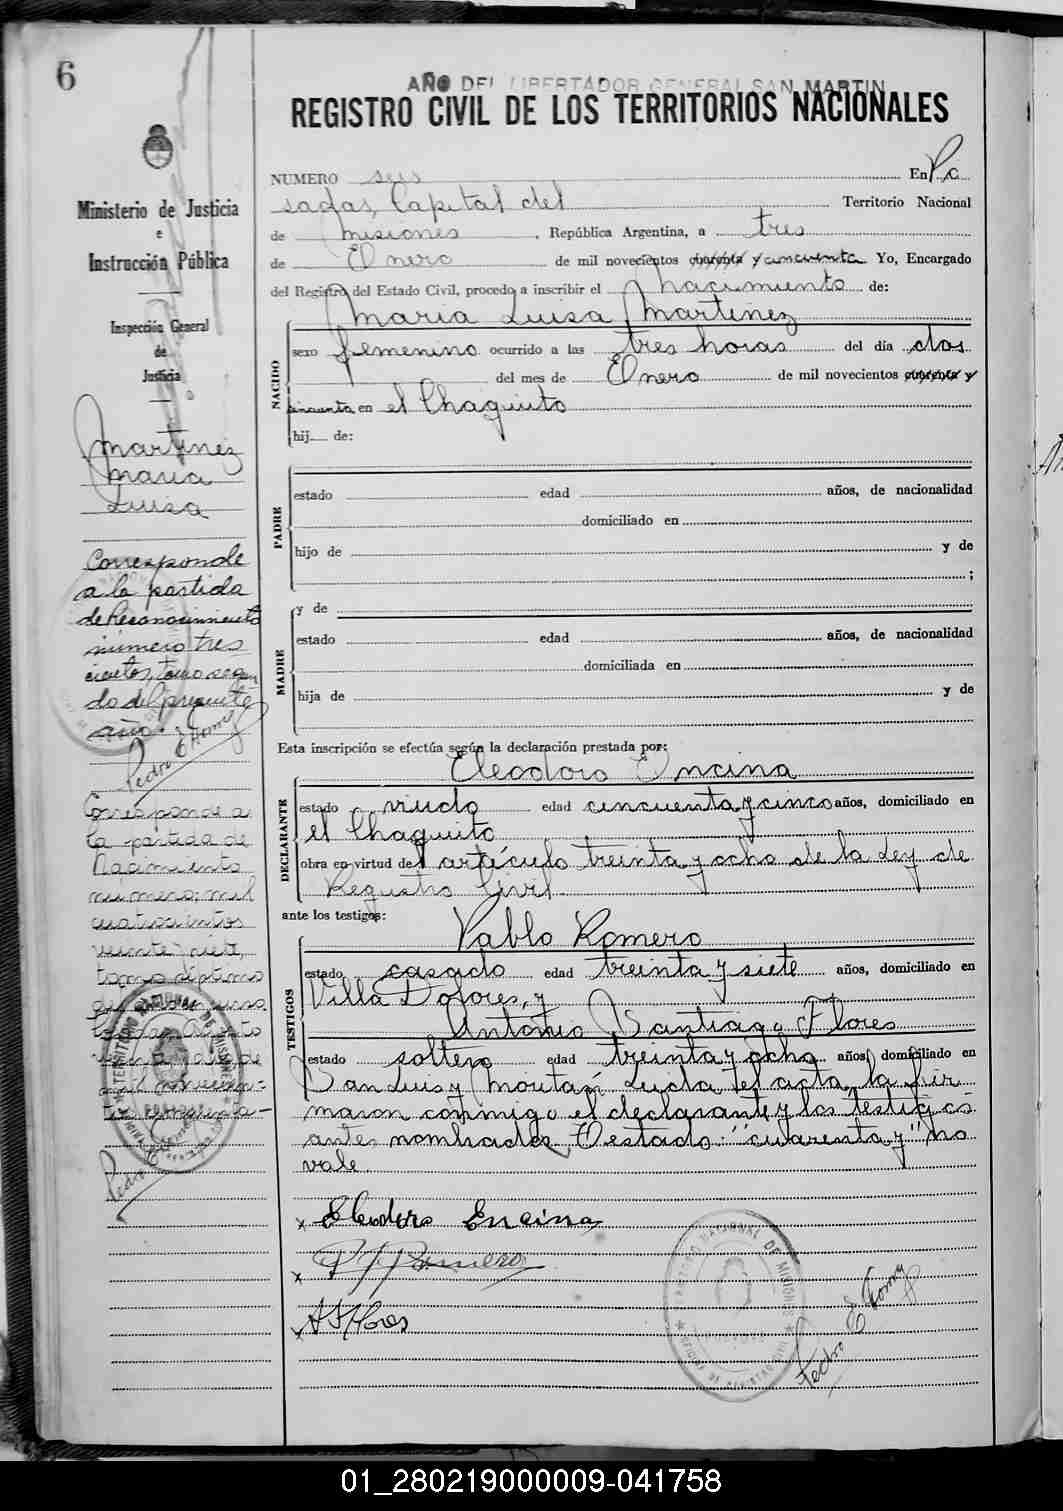 6
AÑO DEL LIBERTADOR GENERAL SAN MARTIN
REGISTRO CIVIL DE LOS TERRITORIOS NACIONALES
Ministerio de Justicia
e
Instrucción Pública
Inspección General
de
Justicia
Martinez
Maria
Luisa
Corresponde
a la partida
de Reconocimiento
número tres
cientos, tomo segun
do del presente
año.
Pedro E
Corresponde a
la partida de
Nacimiento
número, mil
cuatrocientos
veinte y siete,
tomo séptimo
Pedro E
NUMERO seis En Po
sadas, Capital del Territorio Nacional
de Misiones, República Argentina, a tres
de Enero de mil novecientos cuarenta y cincuenta Yo, Encargado
del Registro del Estado Civil, procedo a inscribir el Nacimiento de:
NACIDO
Maria Luisa Martinez
sexo femenino ocurrido a las tres horas del día dos
del mes de Enero de mil novecientos cuarenta y
cincuenta en el Chaquito
hij de:
PADRE
estado edad años, de nacionalidad
domiciliado en
hijo de y de
;
MADRE
y de
estado edad años, de nacionalidad
domiciliada en
hija de y de
Esta inscripción se efectúa según la declaración prestada por:
DECLARANTE
Eleodoro Encina
estado viudo edad cincuenta y cinco años, domiciliado en
el Chaquito
obra en virtud del artículo treinta y ocho de la Ley de
Registro Civil.
ante los testigos:
TESTIGOS
Pablo Romero
estado casado edad treinta y siete años, domiciliado en
Villa Dolores, y
Antonio Santiago Flores
estado soltero edad treinta y ocho años domiciliado en
San Luis y Leida el acta, la fir
maron conmigo el declarante y los testigos
antes nombrados. Testado: "cuarenta y" no
vale.
x Eleodoro Encina
x P J Romero
x A S Flores
TERRITORIO NACIONAL DE MISIONES
OFICINA DE REGISTRO CIVIL
Pedro E
01_280219000009-041758